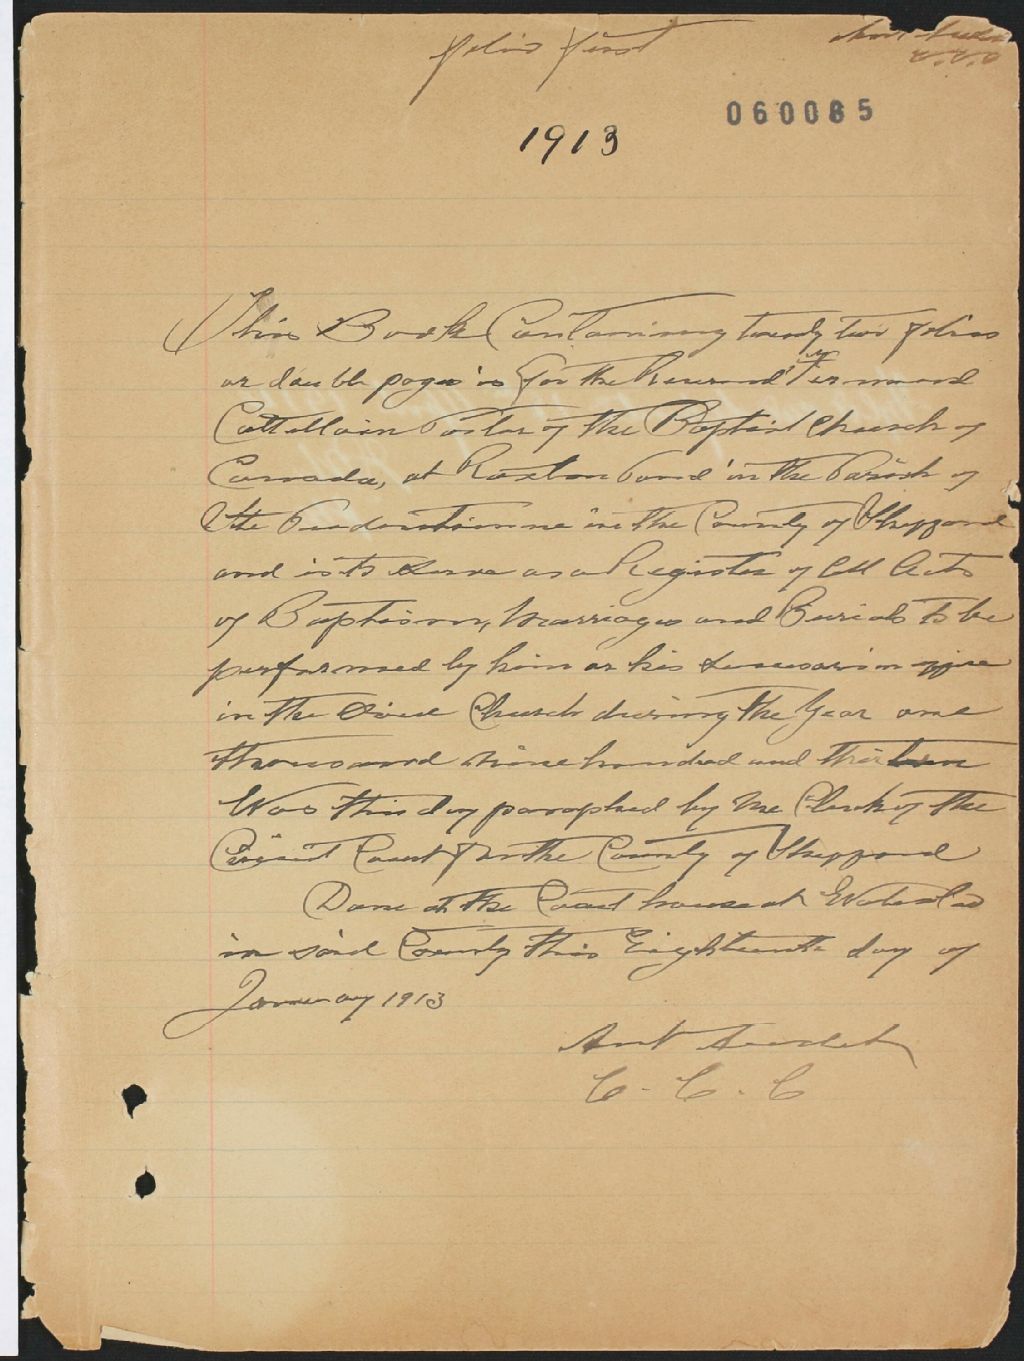 folio first
060085
1913
This Book Containing twenty two folios
or double pages is for the Reverend Fernand
Cattelain Pastor of the Baptist Church of
Canada, at Roxton Pond in the Parish of
Ste Prudentienne in the County of Shefford
and is to serve as a Register of All Acts
of Baptism, Marriages and Burials to be
performed by him or his successor in office
in the Said Church during the Year one
thousand nine hundred and thirteen
Was this day paraphed by Me Clerk of the
Circuit Court for the County of Shefford
Done at the Court house at Waterloo
in said County this Eighteenth day of
January 1913
C. C. C